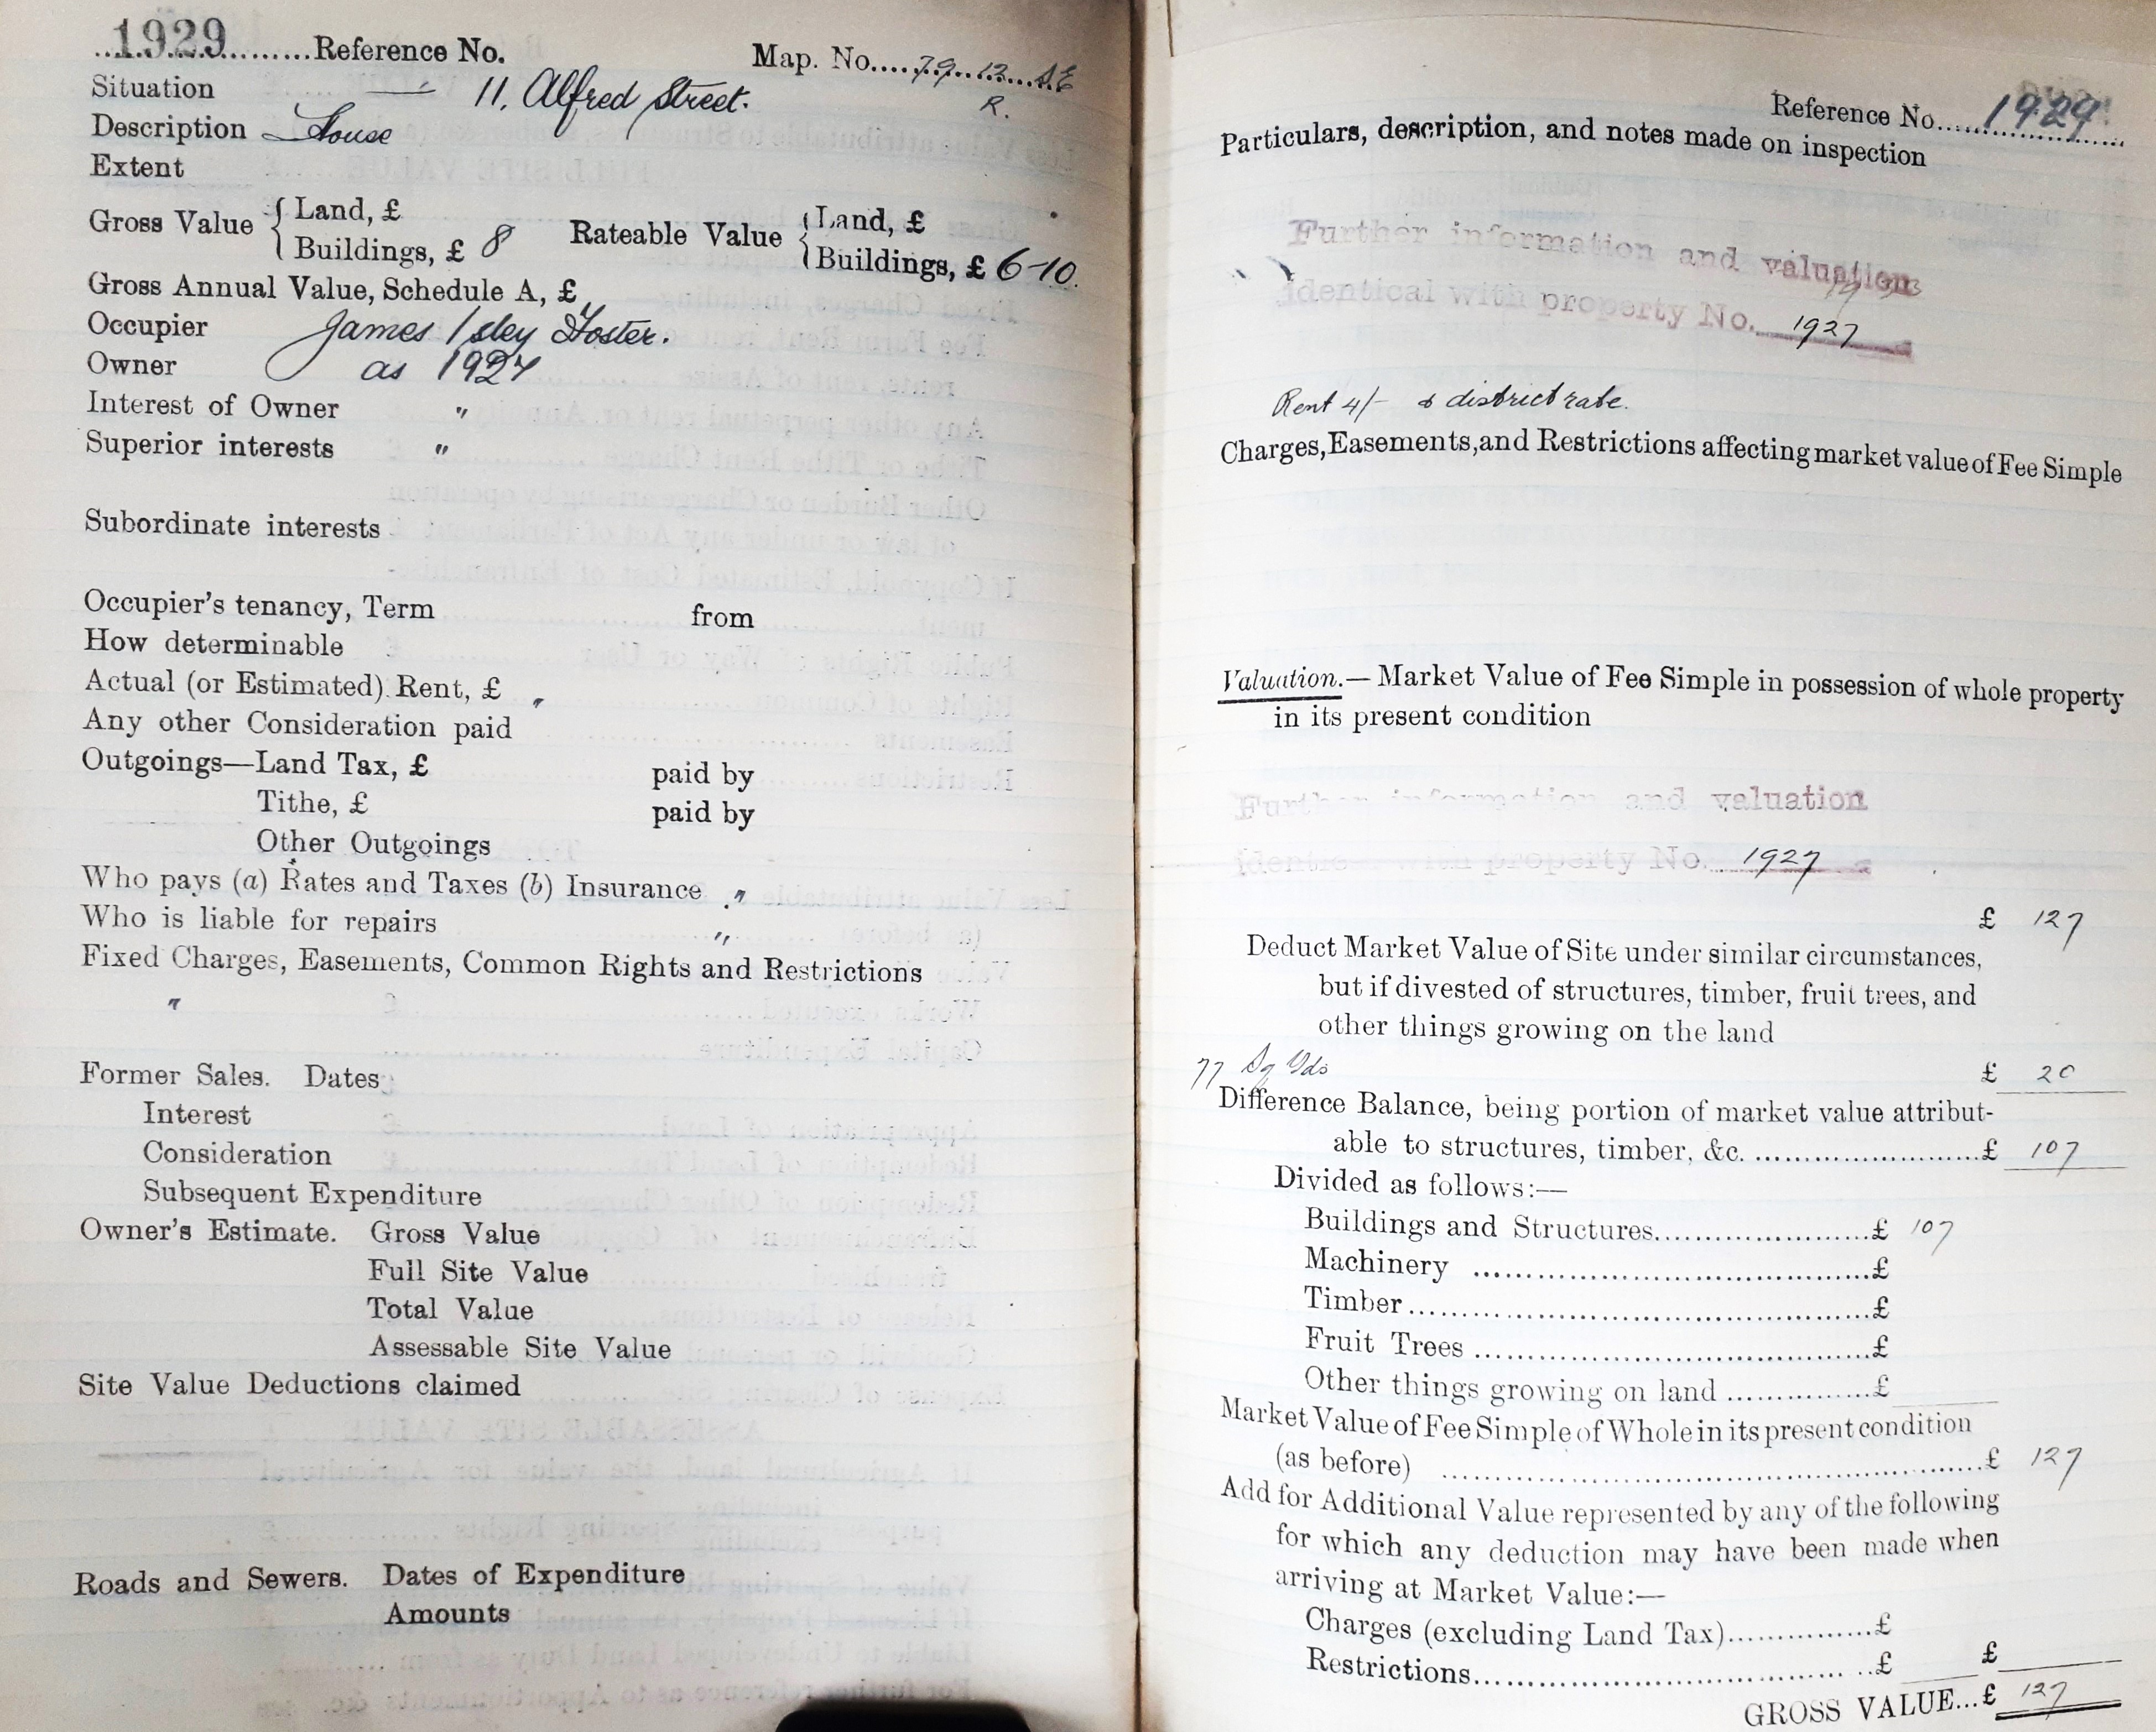 1929 Reference No. Map. No. 79. 12. S.E
R.
Situation 11, Alfred Street.
Description House
Extent
Gross Value { Land, £ Rateable Value { Land, £
Buildings, £ 8 Buildings, £ 6-10.
Gross Annual Value, Schedule A, £
Occupier James Isley Foster.
Owner as 1927
Interest of Owner "
Superior interests "
Subordinate interests
Occupier's tenancy, Term from
How determinable
Actual (or Estimated) Rent, £ "
Any other Consideration paid
Outgoings—Land Tax, £ paid by
Tithe, £ paid by
Other Outgoings
Who pays (a) Rates and Taxes (b) Insurance "
Who is liable for repairs "
Fixed Charges, Easements, Common Rights and Restrictions
"
Former Sales. Dates
Interest
Consideration
Subsequent Expenditure
Owner's Estimate. Gross Value
Full Site Value
Total Value
Assessable Site Value
Site Value Deductions claimed
Roads and Sewers. Dates of Expenditure
Amounts
Reference No. 1929
Particulars, description, and notes made on inspection
Further information and valuation
identical with property No. 1927
Rent 4/- & district rate.
Charges, Easements, and Restrictions affecting market value of Fee Simple
Valuation.— Market Value of Fee Simple in possession of whole property
in its present condition
Further information and valuation
identical with property No. 1927
£ 127
Deduct Market Value of Site under similar circumstances,
but if divested of structures, timber, fruit trees, and
other things growing on the land
77 Sq Yds £ 20
Difference Balance, being portion of market value attribut-
able to structures, timber, &c. £ 107
Divided as follows:—
Buildings and Structures £ 107
Machinery £
Timber £
Fruit Trees £
Other things growing on land £
Market Value of Fee Simple of Whole in its present condition
(as before) £ 127
Add for Additional Value represented by any of the following
for which any deduction may have been made when
arriving at Market Value:—
Charges (excluding Land Tax) £
Restrictions £ £
GROSS VALUE...£ 127